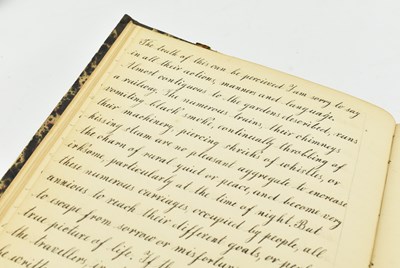 The truth of this can be perceived I am sorry to say
in all their actions, manners and language.
Almost contiguous to the gardens described, runs
a railway. The numerous trains, their chimneys
vomiting black smoke, continually throbbing of
their machinery, piercing shrieks of whistles, or
hissing steam are no pleasant aggregate to increase
the charm of rural quiet or peace, and become very
irksome, particularly at the time of night. But
these numerous carriages, occupied by people, all
anxious to reach their different goals, or perhaps
to escape from sorrow or misfortune
true picture of life. If the
the travellers, in
be written